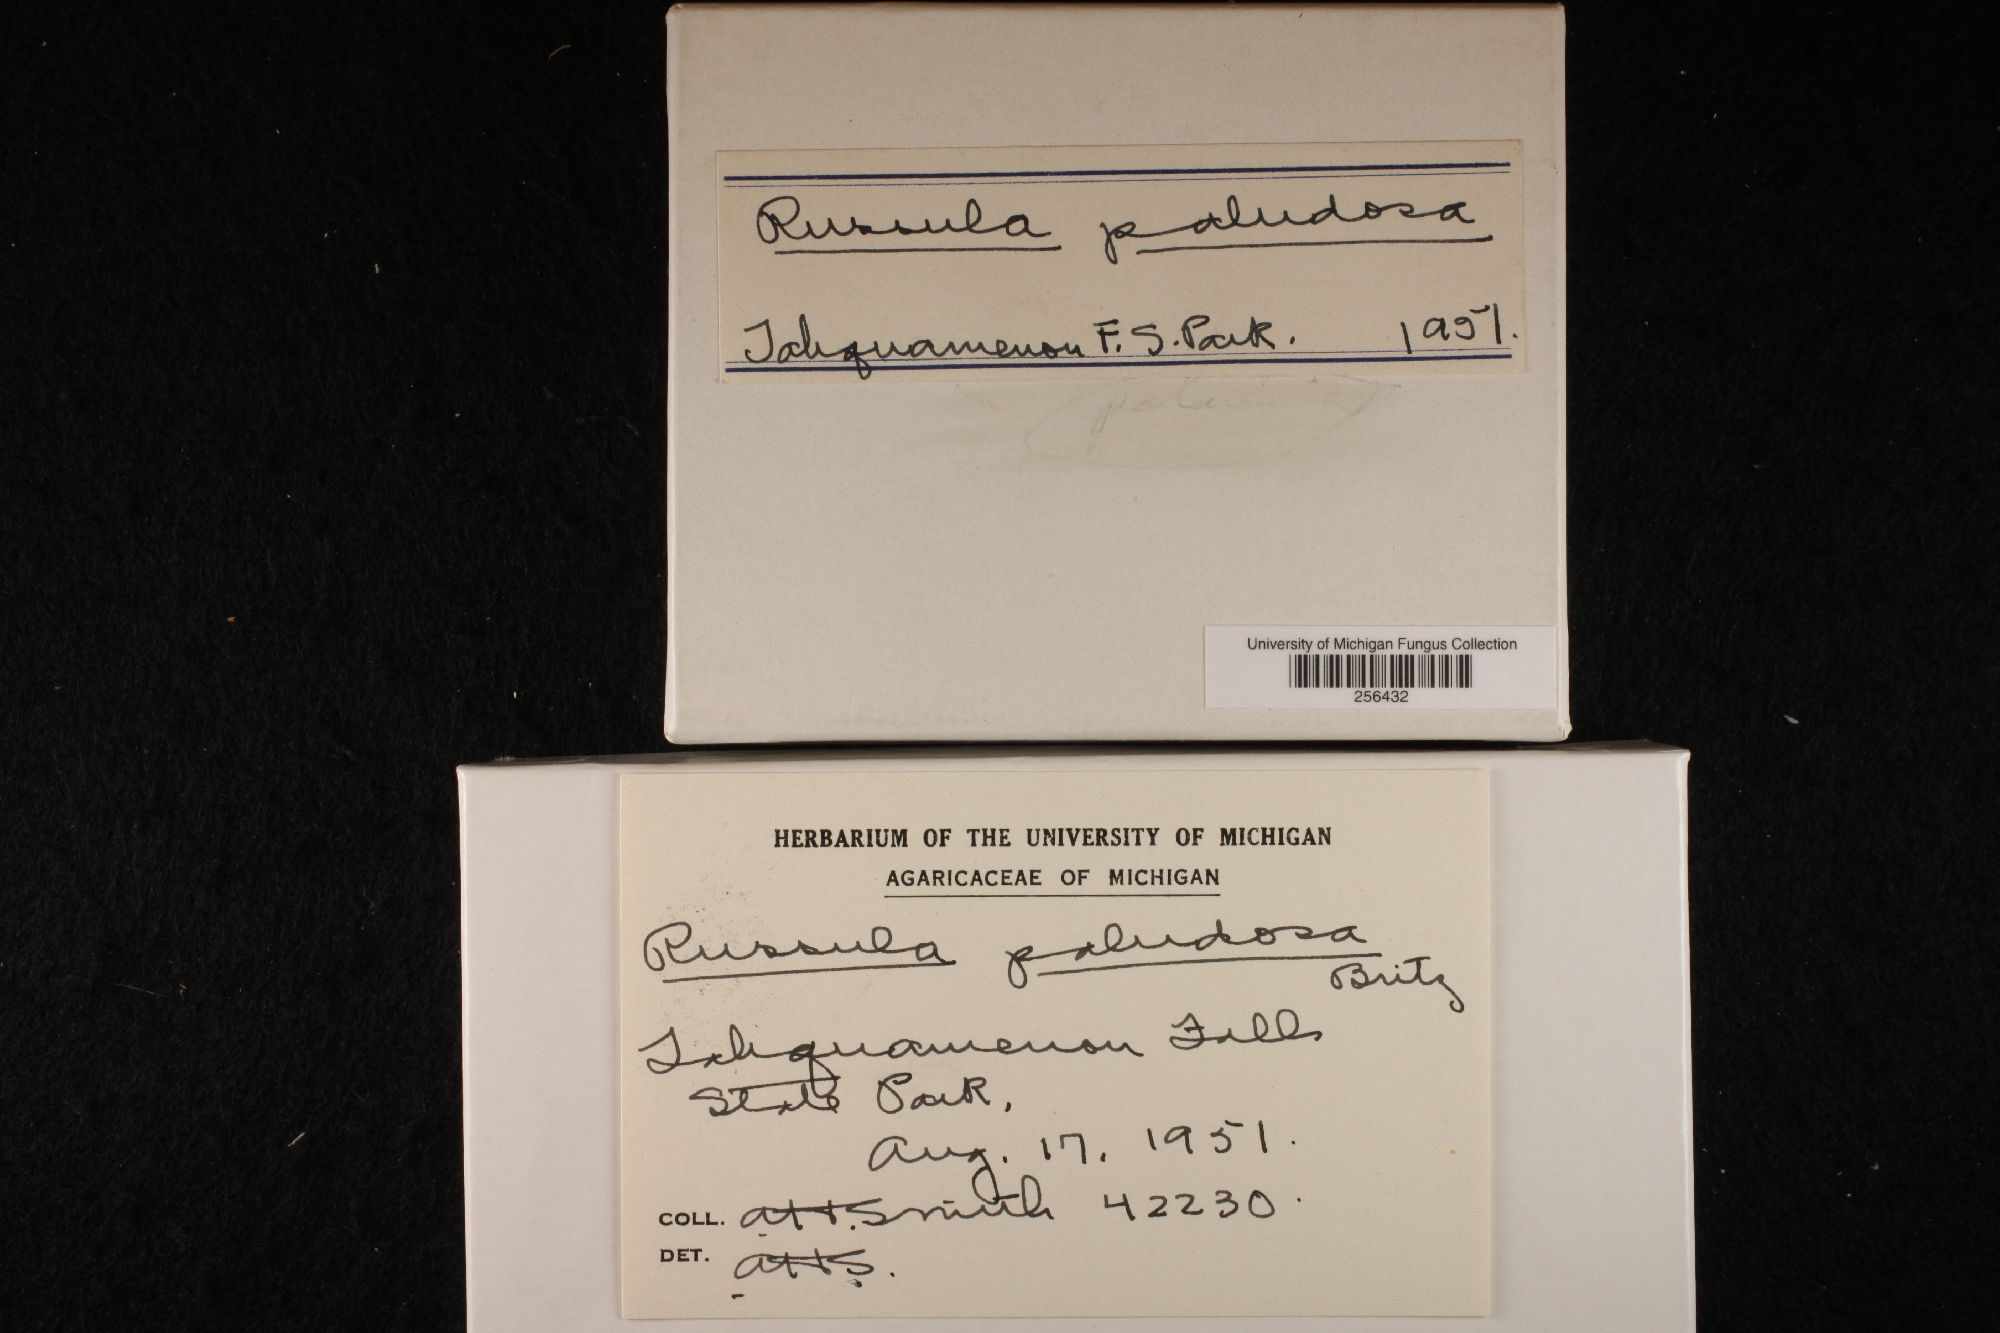 Russula paludosa
Tahquamenon F. S. Park. 1951.
University of Michigan Fungus Collection
256432
HERBARIUM OF THE UNIVERSITY OF MICHIGAN
AGARICACEAE OF MICHIGAN
Russula paludosa
Britz
Tahquamenon Falls
State Park,
Aug. 17, 1951.
COLL. AHSmith 42230.
DET. AHS.